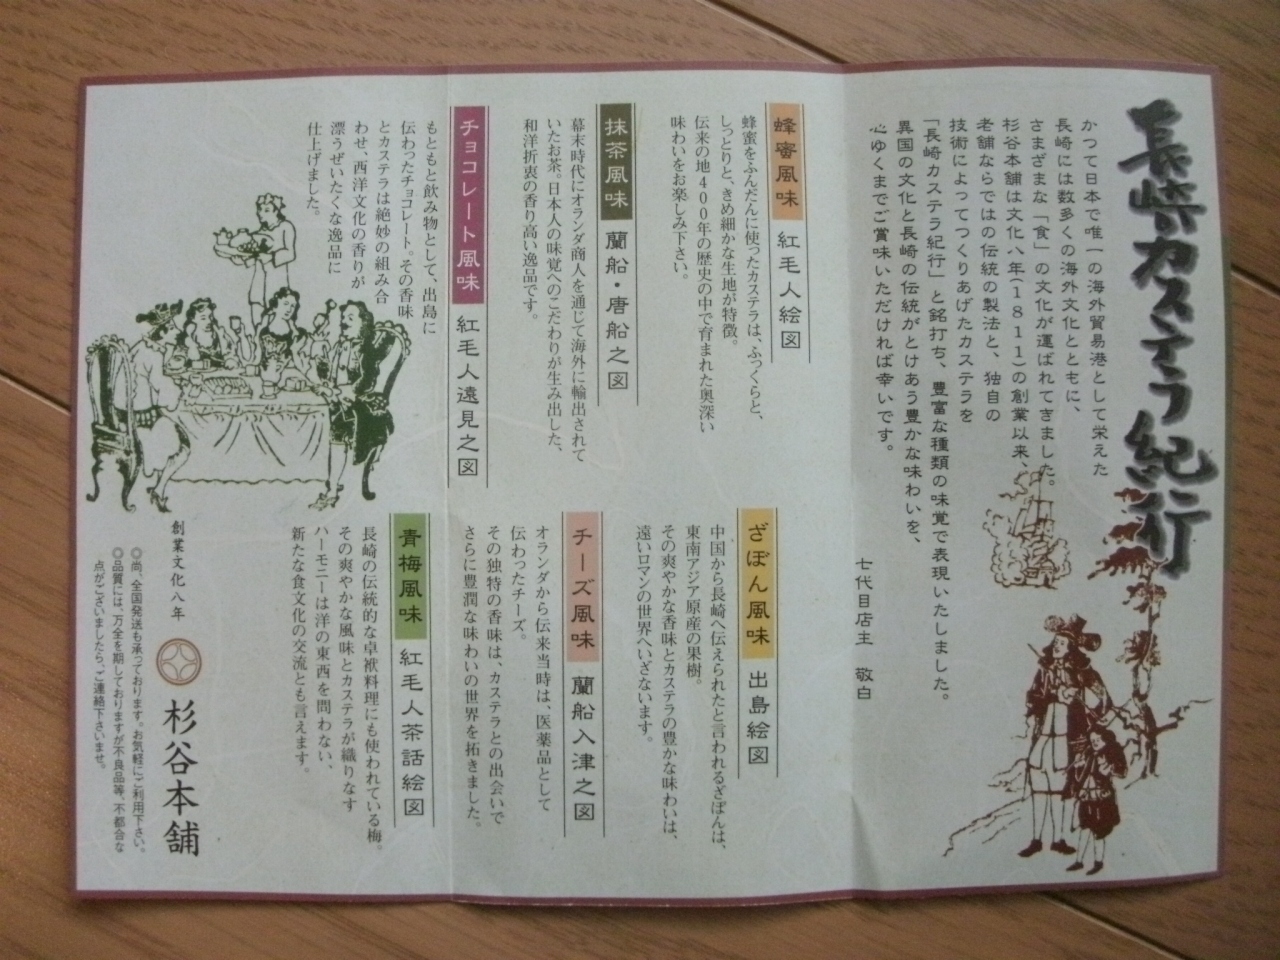 長崎カステラ紀行
かつて日本で唯一の海外貿易港として栄えた
長崎には数多くの海外文化とともに、
さまざまな「食」の文化が運ばれてきました。
杉谷本舗は文化八年(1811)の創業以来、
老舗ならではの伝統の製法と、独自の
技術によってつくりあげたカステラを
「長崎カステラ紀行」と銘打ち、豊富な種類の味覚で表現いたしました。
異国の文化と長崎の伝統がとけあう豊かな味わいを、
心ゆくまでご賞味いただければ幸いです。
七代目店主 敬白
蜂蜜風味 紅毛人絵図
蜂蜜をふんだんに使ったカステラは、ふっくらと、
しっとりと、きめ細かな生地が特徴。
伝来の地400年の歴史の中で育まれた奥深い
味わいをお楽しみ下さい。
抹茶風味 蘭船・唐船之図
幕末時代にオランダ商人を通じて海外に輸出されて
いたお茶。日本人の味覚へのこだわりが生み出した、
和洋折衷の香り高い逸品です。
チョコレート風味 紅毛人遠見之図
もともと飲み物として、出島に
伝わったチョコレート。その香味
とカステラは絶妙の組み合
わせ、西洋文化の香りが
漂うぜいたくな逸品に
仕上げました。
ざぼん風味 出島絵図
中国から長崎へ伝えられたと言われるざぼんは、
東南アジア原産の果樹。
その爽やかな香味とカステラの豊かな味わいは、
遠いロマンの世界へいざないます。
チーズ風味 蘭船入津之図
オランダから伝来当時は、医薬品として
伝わったチーズ。
その独特の香味は、カステラとの出会いで
さらに豊潤な味わいの世界を拓きました。
青梅風味 紅毛人茶話絵図
長崎の伝統的な卓袱料理にも使われている梅。
その爽やかな風味とカステラが織りなす
ハーモニーは洋の東西を問わない、
新たな食文化の交流とも言えます。
創業文化八年
杉谷本舗
◎尚、全国発送も承っております。お気軽にご利用下さい。
◎品質には、万全を期しておりますが不良品等、不都合な
点がございましたら、ご連絡下さいませ。